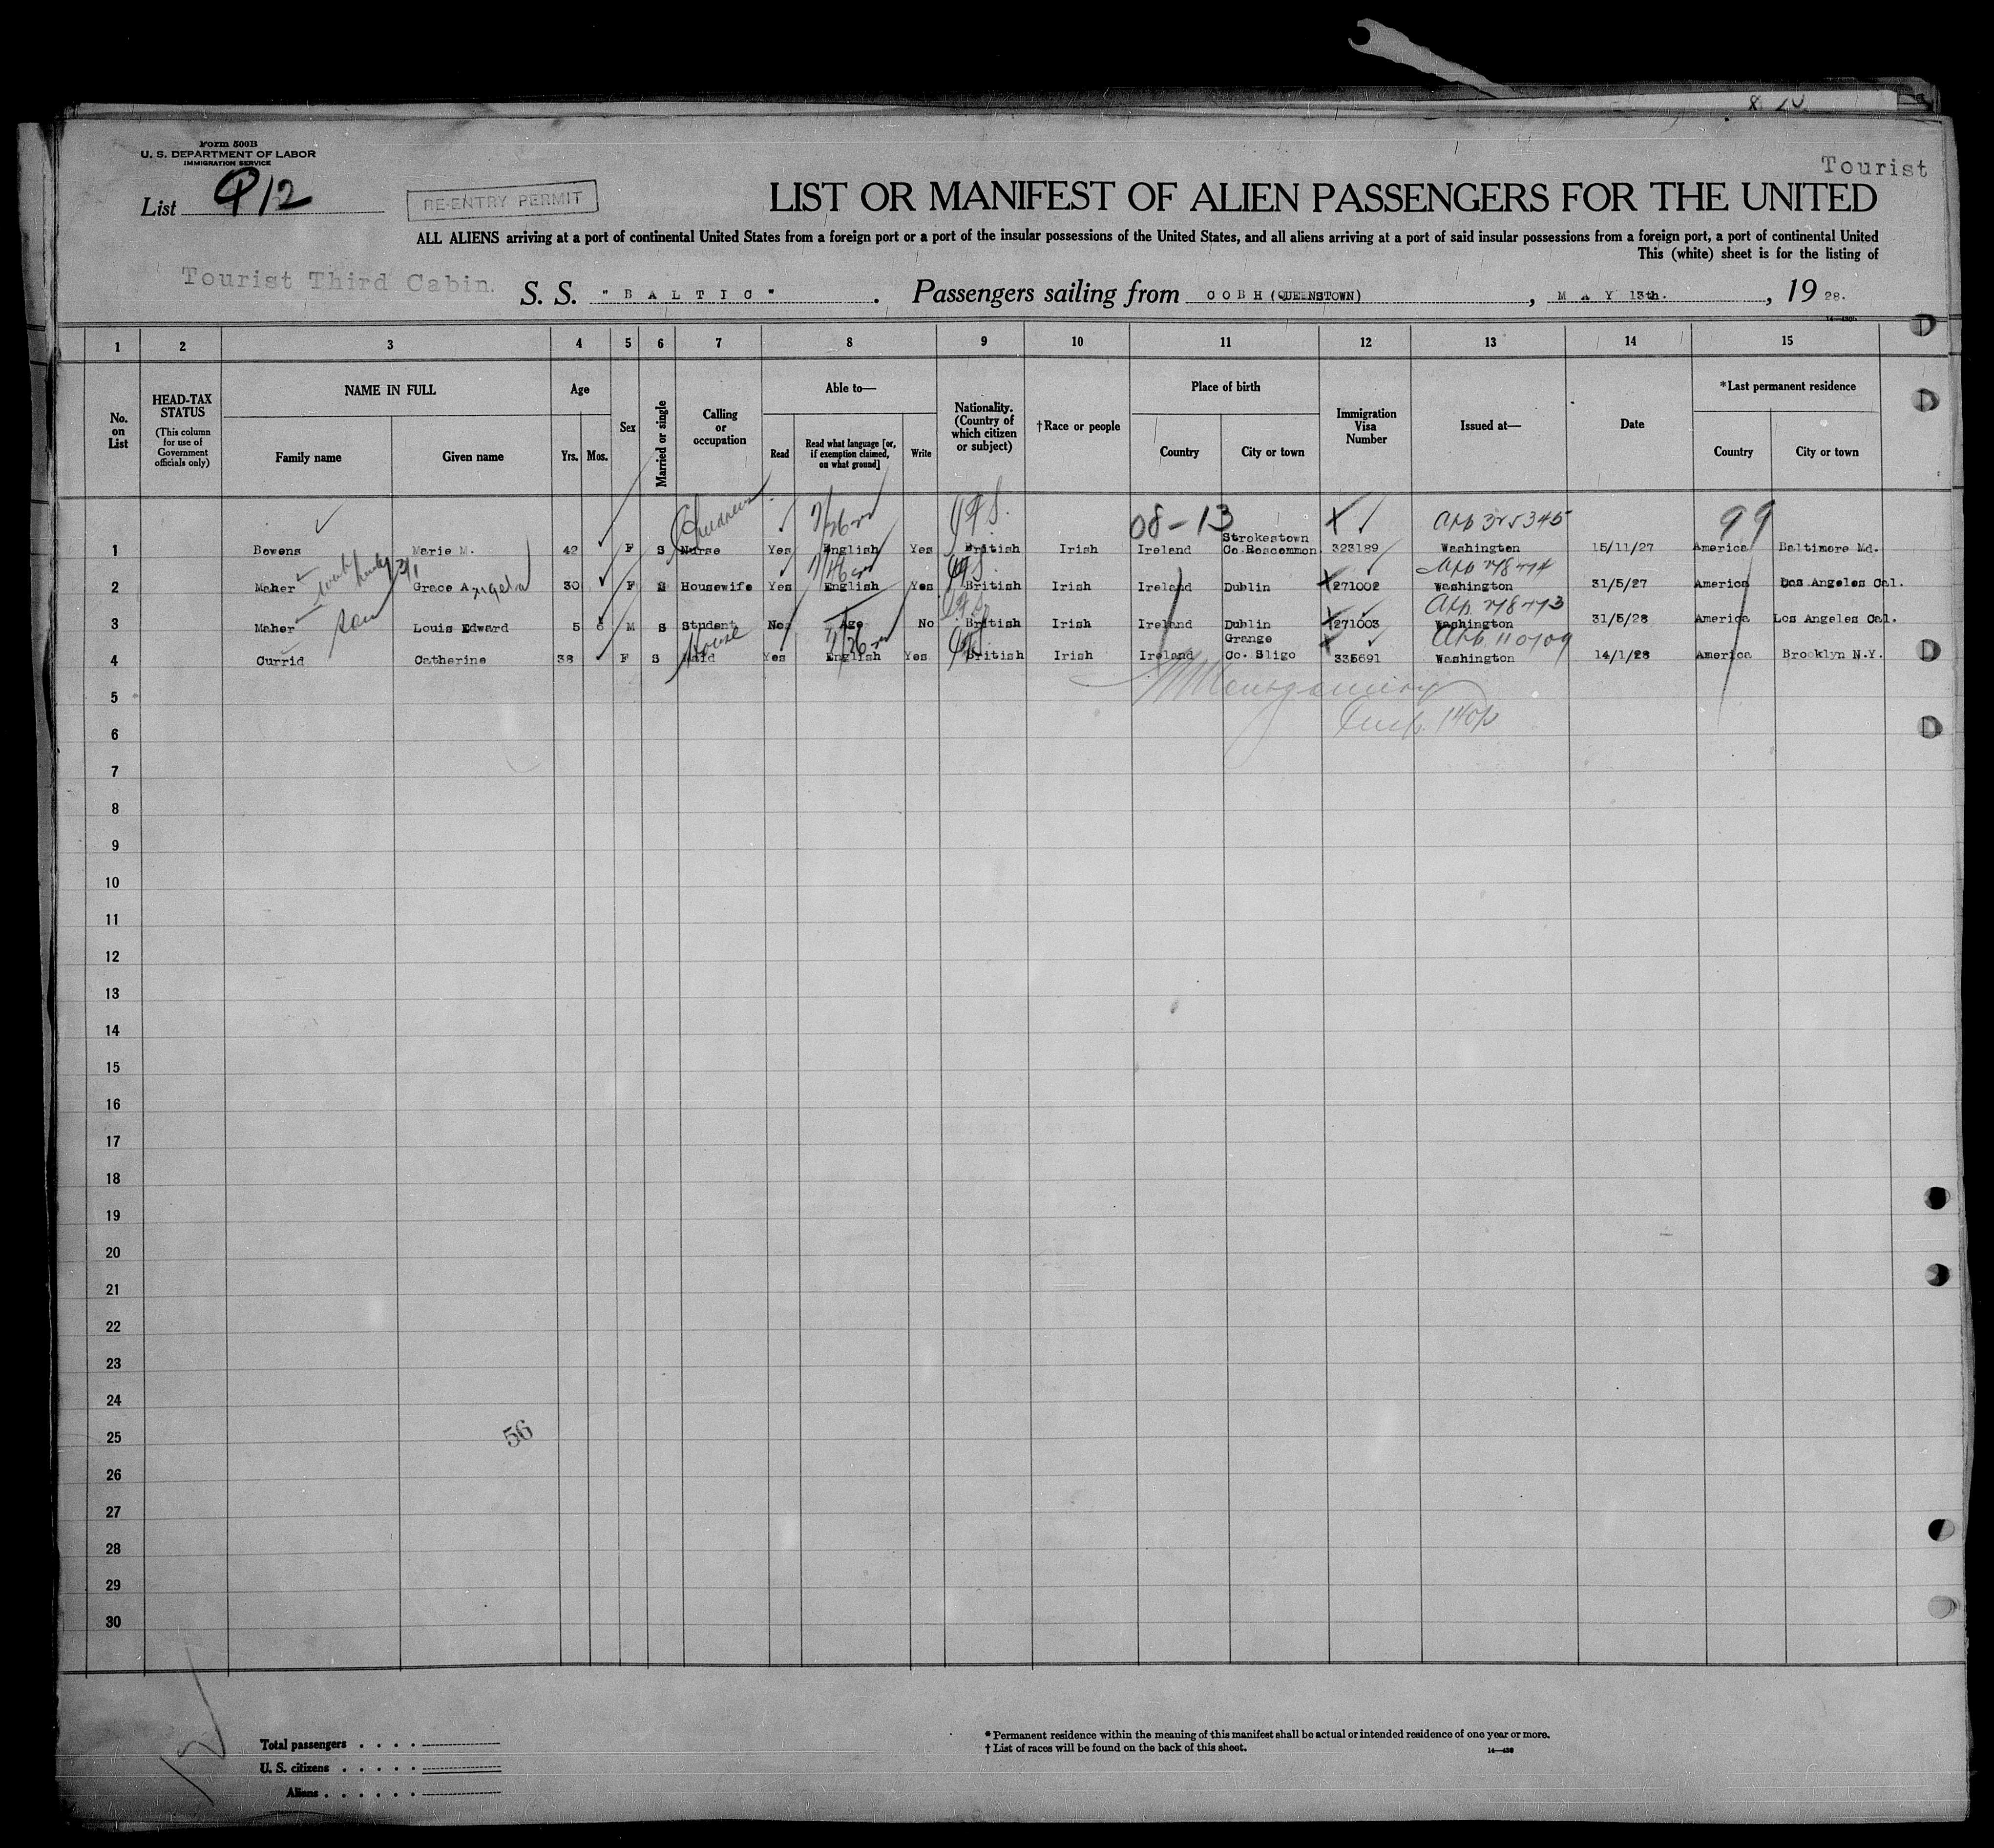 8
Form 500B
U. S. DEPARTMENT OF LABOR
IMMIGRATION SERVICE
Tourist
List 12
RE-ENTRY PERMIT
LIST OR MANIFEST OF ALIEN PASSENGERS FOR THE UNITED
ALL ALIENS arriving at a port of continental United States from a foreign port or a port of the insular possessions of the United States, and all aliens arriving at a port of said insular possessions from a foreign port, a port of continental United
This (white) sheet is for the listing of
Tourist Third Cabin.
S. S. "BALTIC". Passengers sailing from COBH (QUEENSTOWN), MAY 13th., 19 28.
1 2 3 4 5 6 7 8 9 10 11 12 13 14 15
No. on List
HEAD-TAX STATUS (This column for use of Government officials only)
NAME IN FULL
Family name Given name
Age
Yrs. Mos.
Sex
Married or single
Calling or occupation
Able to—
Read Read what language [or, if exemption claimed, on what ground] Write
Nationality. (Country of which citizen or subject)
†Race or people
Place of birth
Country City or town
Immigration Visa Number
Issued at—
Date
*Last permanent residence
Country City or town
08-13 99
Strokestown
1 Bowens Marie M. 42 F S Nurse Yes English Yes British Irish Ireland Co. Roscommon. 323189 Washington 15/11/27 America Baltimore Md.
2 Maher Grace Angela 30 F S Housewife Yes English Yes British Irish Ireland Dublin 271002 Washington 31/5/27 America Los Angeles Cal.
3 Maher Louis Edward 5 6 M S Student No Age No British Irish Ireland Dublin 271003 Washington 31/5/28 America Los Angeles Cal.
House Grange
4 Currid Catherine 38 F S Maid Yes English Yes British Irish Ireland Co. Sligo 335691 Washington 14/1/28 America Brooklyn N.Y.
5 Montgomery
6
7
8
9
10
11
12
13
14
15
16
17
18
19
20
21
22
23
24
25 56
26
27
28
29
30
Total passengers . . . .
U. S. citizens . . . . .
Aliens . . . . . .
* Permanent residence within the meaning of this manifest shall be actual or intended residence of one year or more.
† List of races will be found on the back of this sheet.